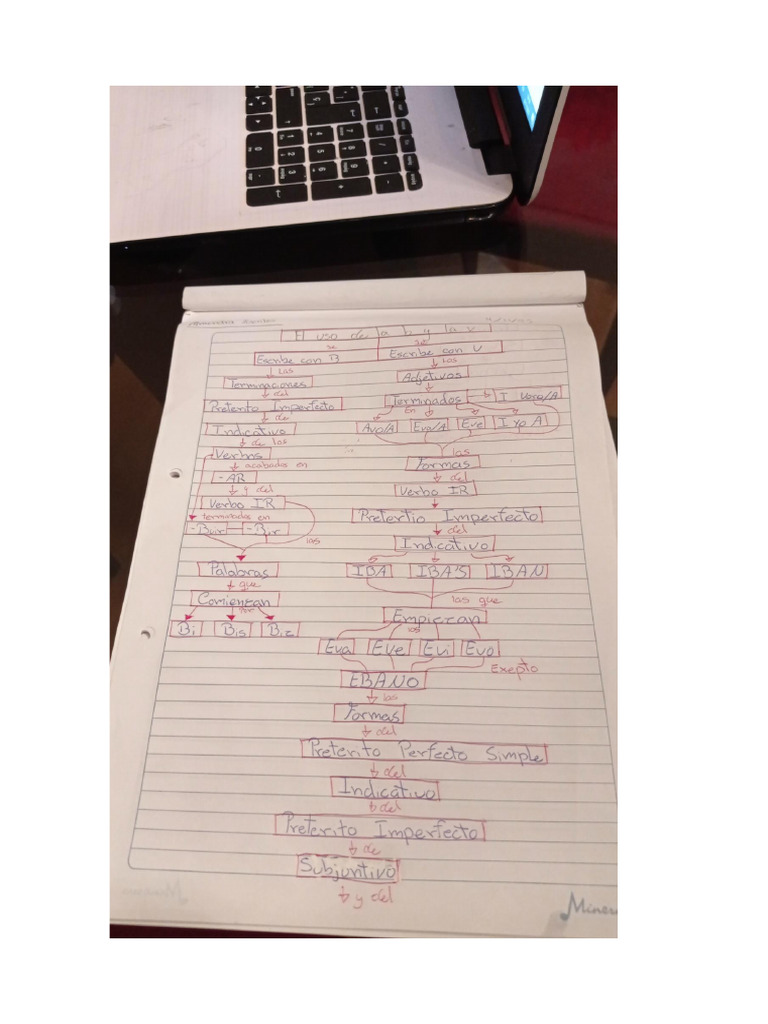 El uso de la b y la v
se
se
Escribe con B
Escribe con V
las
los
Terminaciones
Adjetivos
del
Pretento Imperfecto
Terminados
I Voro/A
de
en
Indicativo
Avo/A
Eva/A
Eve
I vo A
de las
Verbos
las
acabados en
Formas
-AR
del
y del
Verbo IR
Verbo IR
terminados en
Pretertio Imperfecto
-Buir
-Bir
del
las
Indicativo
Palabras
IBA
IBA'S
IBAN
que
las que
Comienzan
Empiezan
por
los
Bi
Bis
Biz
Eva
Eve
Evi
Evo
Exepto
EBANO
las
Formas
del
Preterito Perfecto Simple
del
Indicativo
del
Preterito Imperfecto
de
Subjuntivo
y del